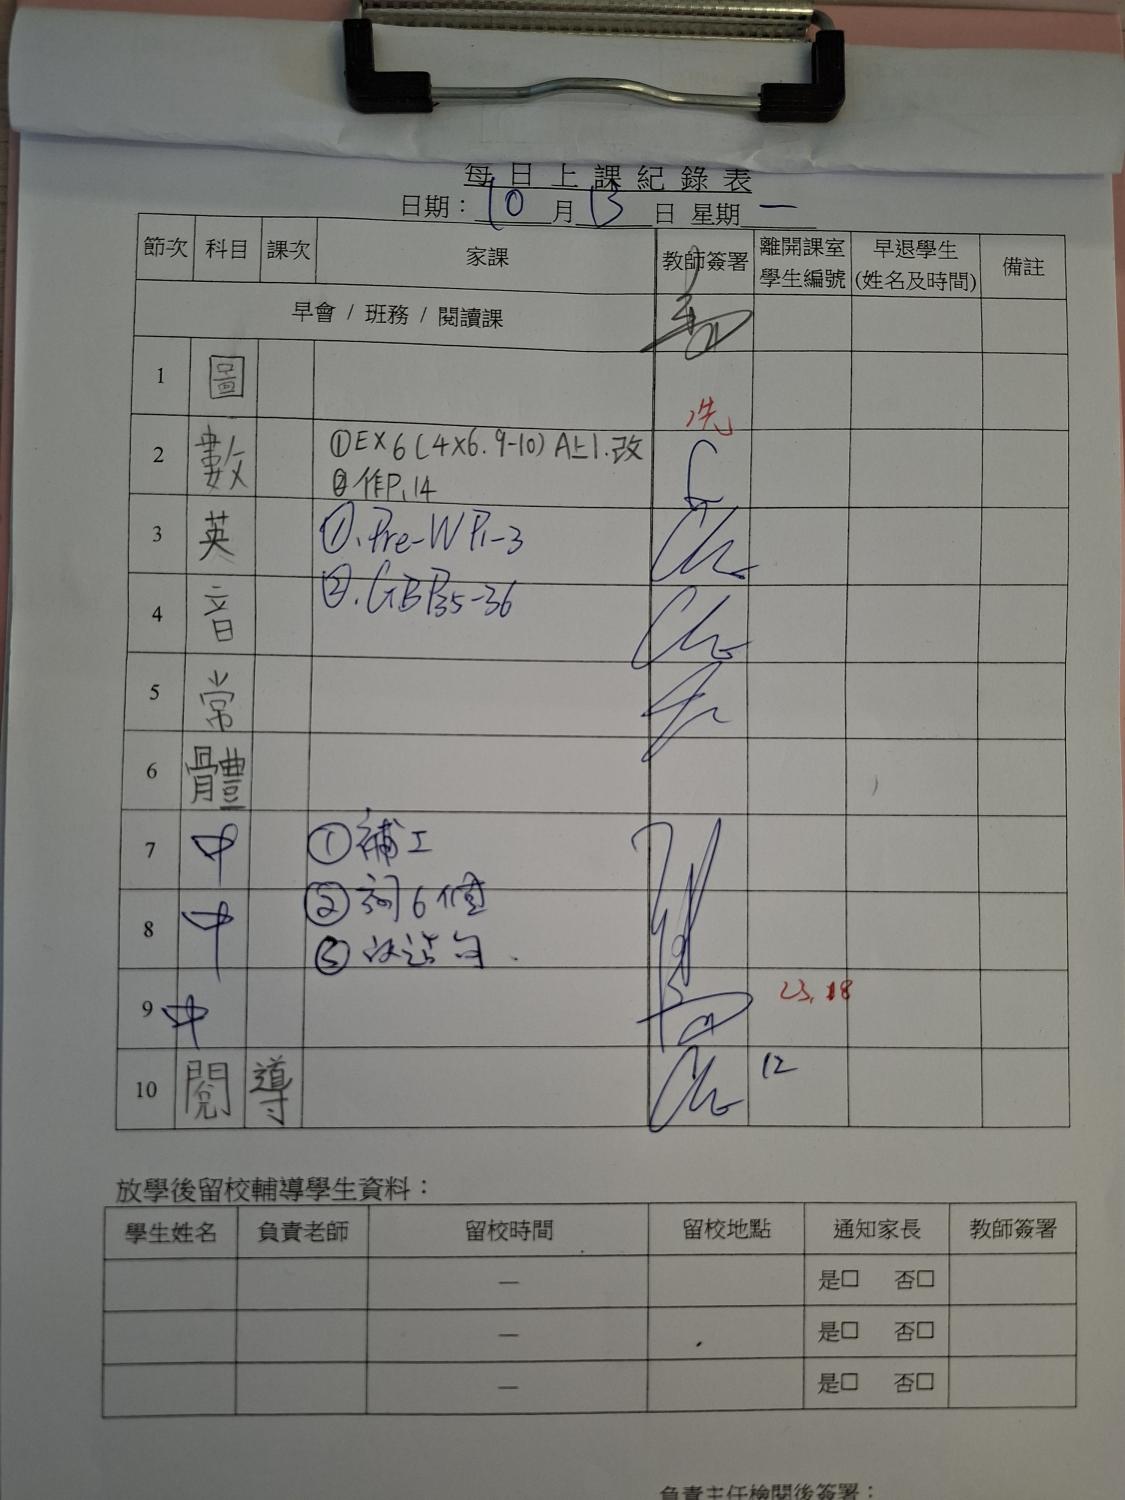 每日上課紀錄表
日期：10月13日 星期一
節次 科目 課次 家課 教師簽署 離開課室學生編號 早退學生(姓名及時間) 備註
早會 / 班務 / 閱讀課
1 圖
2 數 ①EX6(4X6.9-10)A上1.改
②作P.14
3 英 ①.Pre-W P1-3
4 音 ②.GB P35-36
5 常
6 體
7 中 ①補工
8 中 ②詞6個
③改造句.
9 中 23, 18
10 閱 導 12
放學後留校輔導學生資料：
學生姓名 負責老師 留校時間 留校地點 通知家長 教師簽署
— 是□ 否□
— 是□ 否□
— 是□ 否□
負責主任檢閱後簽署：